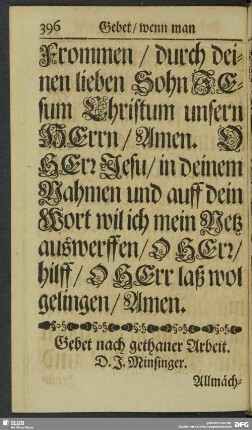 396 Gebet / wenn man
Frommen / durch dei-
nen lieben Sohn JE-
sum Christum unsern
HErrn / Amen. O
HErr Jesu / in deinem
Nahmen und auff dein
Wort wil ich mein Netz
auswerffen / O HErr /
hilff / O HErr laß wol
gelingen / Amen.
Gebet nach gethaner Arbeit.
D. J. Minsinger.
Allmäch-
SLUB
DFG